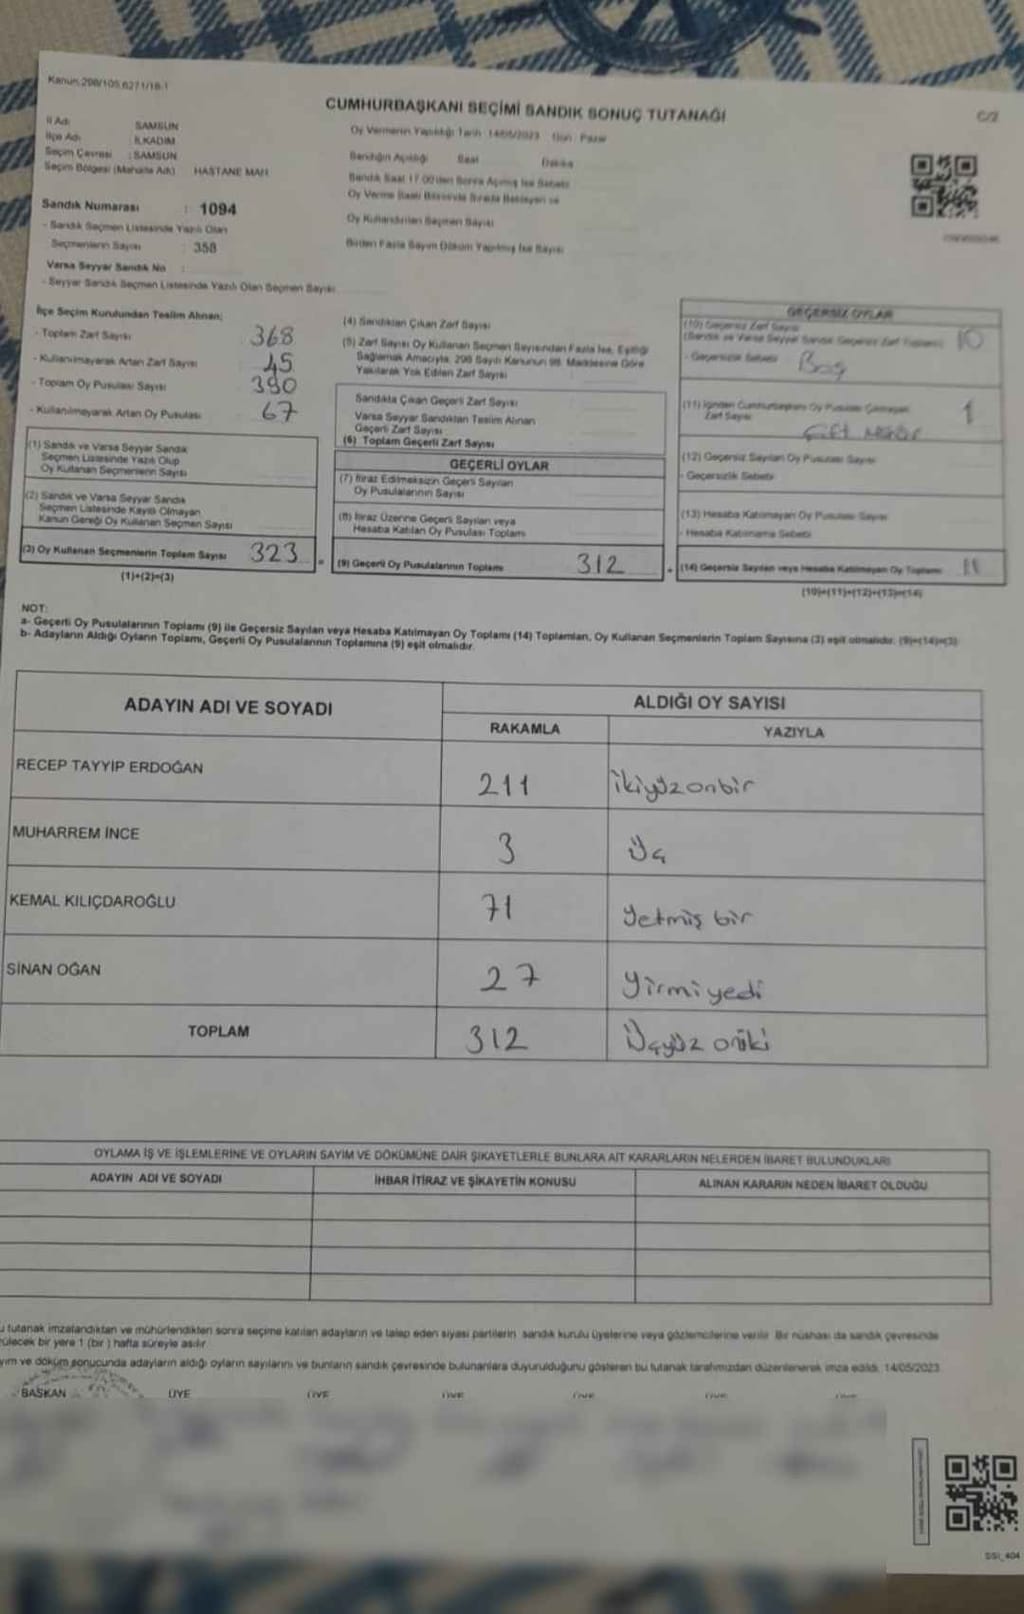 Kanun:298/105,6271/18-1
CUMHURBAŞKANI SEÇİMİ SANDIK SONUÇ TUTANAĞI
C/2
İl Adı : SAMSUN
İlçe Adı : İLKADIM
Seçim Çevresi : SAMSUN
Seçim Bölgesi (Mahalle Adı) HASTANE MAH
Oy Vermenin Yapıldığı Tarih 14/05/2023 Gün Pazar
Sandığın Açıldığı Saat Dakika
Sandık Saat 17.00'den Sonra Açılmış İse Sebebi
Oy Verme Saati Bitiminde Sırada Bekleyen ve
Oy Kullandırılan Seçmen Sayısı
Birden Fazla Sayım Döküm Yapılmış İse Sayısı
Sandık Numarası : 1094
- Sandık Seçmen Listesinde Yazılı Olan
Seçmenlerin Sayısı : 358
Varsa Seyyar Sandık No :
- Seyyar Sandık Seçmen Listesinde Yazılı Olan Seçmen Sayısı
İlçe Seçim Kurulundan Teslim Alınan;
- Toplam Zarf Sayısı 368
- Kullanılmayarak Artan Zarf Sayısı 45
- Toplam Oy Pusulası Sayısı 390
- Kullanılmayarak Artan Oy Pusulası 67
(1) Sandık ve Varsa Seyyar Sandık
Seçmen Listesinde Yazılı Olup
Oy Kullanan Seçmenlerin Sayısı
(2) Sandık ve Varsa Seyyar Sandık
Seçmen Listesinde Kayıtlı Olmayan
Kanun Gereği Oy Kullanan Seçmen Sayısı
(3) Oy Kullanan Seçmenlerin Toplam Sayısı 323
(1)+(2)=(3)
(4) Sandıktan Çıkan Zarf Sayısı
(5) Zarf Sayısı Oy Kullanan Seçmen Sayısından Fazla İse, Eşitliği
Sağlamak Amacıyla, 298 Sayılı Kanunun 98. Maddesine Göre
Yakılarak Yok Edilen Zarf Sayısı
Sandıkta Çıkan Geçerli Zarf Sayısı
Varsa Seyyar Sandıktan Teslim Alınan
Geçerli Zarf Sayısı
(6) Toplam Geçerli Zarf Sayısı
GEÇERLİ OYLAR
(7) İtiraz Edilmeksizin Geçerli Sayılan
Oy Pusulalarının Sayısı
(8) İtiraz Üzerine Geçerli Sayılan veya
Hesaba Katılan Oy Pusulası Toplamı
= (9) Geçerli Oy Pusulalarının Toplamı 312
GEÇERSİZ OYLAR
(10) Geçersiz Zarf Sayısı
(Sandık ve Varsa Seyyar Sandık Geçersiz Zarf Toplamı) 10
- Geçersizlik Sebebi Boş
(11) İçinden Cumhurbaşkanı Oy Pusulası Çıkmayan
Zarf Sayısı 1
Çift Mühür
(12) Geçersiz Sayılan Oy Pusulası Sayısı
- Geçersizlik Sebebi
(13) Hesaba Katılmayan Oy Pusulası Sayısı
- Hesaba Katılmama Sebebi
+ (14) Geçersiz Sayılan veya Hesaba Katılmayan Oy Toplamı 11
(10)+(11)+(12)+(13)=(14)
NOT:
a- Geçerli Oy Pusulalarının Toplamı (9) ile Geçersiz Sayılan veya Hesaba Katılmayan Oy Toplamı (14) Toplamları, Oy Kullanan Seçmenlerin Toplam Sayısına (3) eşit olmalıdır. (9)+(14)=(3)
b- Adayların Aldığı Oyların Toplamı, Geçerli Oy Pusulalarının Toplamına (9) eşit olmalıdır.
ADAYIN ADI VE SOYADI
ALDIĞI OY SAYISI
RAKAMLA YAZIYLA
RECEP TAYYIP ERDOĞAN 211 ikiyüzonbir
MUHARREM İNCE 3 Üç
KEMAL KILIÇDAROĞLU 71 Yetmiş bir
SİNAN OĞAN 27 Yirmiyedi
TOPLAM 312 Üçyüz oniki
OYLAMA İŞ VE İŞLEMLERİNE VE OYLARIN SAYIM VE DÖKÜMÜNE DAİR ŞİKAYETLERLE BUNLARA AİT KARARLARIN NELERDEN İBARET BULUNDUKLARI
ADAYIN ADI VE SOYADI İHBAR İTİRAZ VE ŞİKAYETİN KONUSU ALINAN KARARIN NEDEN İBARET OLDUĞU
u tutanak imzalandıktan ve mühürlendikten sonra seçime katılan adayların ve talep eden siyasi partilerin sandık kurulu üyelerine veya gözlemcilerine verilir. Bir nüshası da sandık çevresinde
rülecek bir yere 1 (bir) hafta süreyle asılır.
yım ve döküm sonucunda adayların aldığı oyların sayılarını ve bunların sandık çevresinde bulunanlara duyurulduğunu gösteren bu tutanak tarafımızdan düzenlenerek imza edildi. 14/05/2023
BAŞKAN ÜYE ÜYE ÜYE ÜYE ÜYE ÜYE
SSI_404